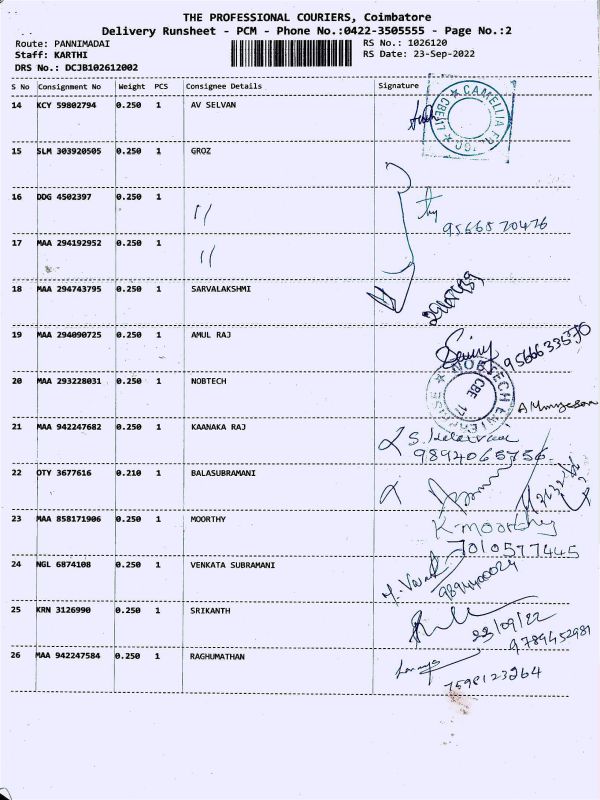 THE PROFESSIONAL COURIERS, Coimbatore
Delivery Runsheet - PCM - Phone No.:0422-3505555 - Page No.:2
Route: PANNIMADAI
RS No.: 1026120
Staff: KARTHI
RS Date: 23-Sep-2022
DRS No.: DCJB102612002
S No Consignment No Weight PCS Consignee Details Signature
14 KCY 59802794 0.250 1 AV SELVAN
CAMELLIA
15 SLM 303920505 0.250 1 GROZ
16 DDG 4502397 0.250 1 //
9566570476
17 MAA 294192952 0.250 1 //
18 MAA 294743795 0.250 1 SARVALAKSHMI
19 MAA 294090725 0.250 1 AMUL RAJ
9566633570
20 MAA 293228031 0.250 1 NOBTECH
NOBTECH ENTERPRISE
CBE 17
21 MAA 942247682 0.250 1 KAANAKA RAJ
9894065756
22 OTY 3677616 0.210 1 BALASUBRAMANI
23 MAA 858171906 0.250 1 MOORTHY
K-moorthy
7010577445
24 NGL 6874108 0.250 1 VENKATA SUBRAMANI
9894400024
25 KRN 3126990 0.250 1 SRIKANTH
23/09/22
9789452981
26 MAA 942247584 0.250 1 RAGHUMATHAN
7598123264